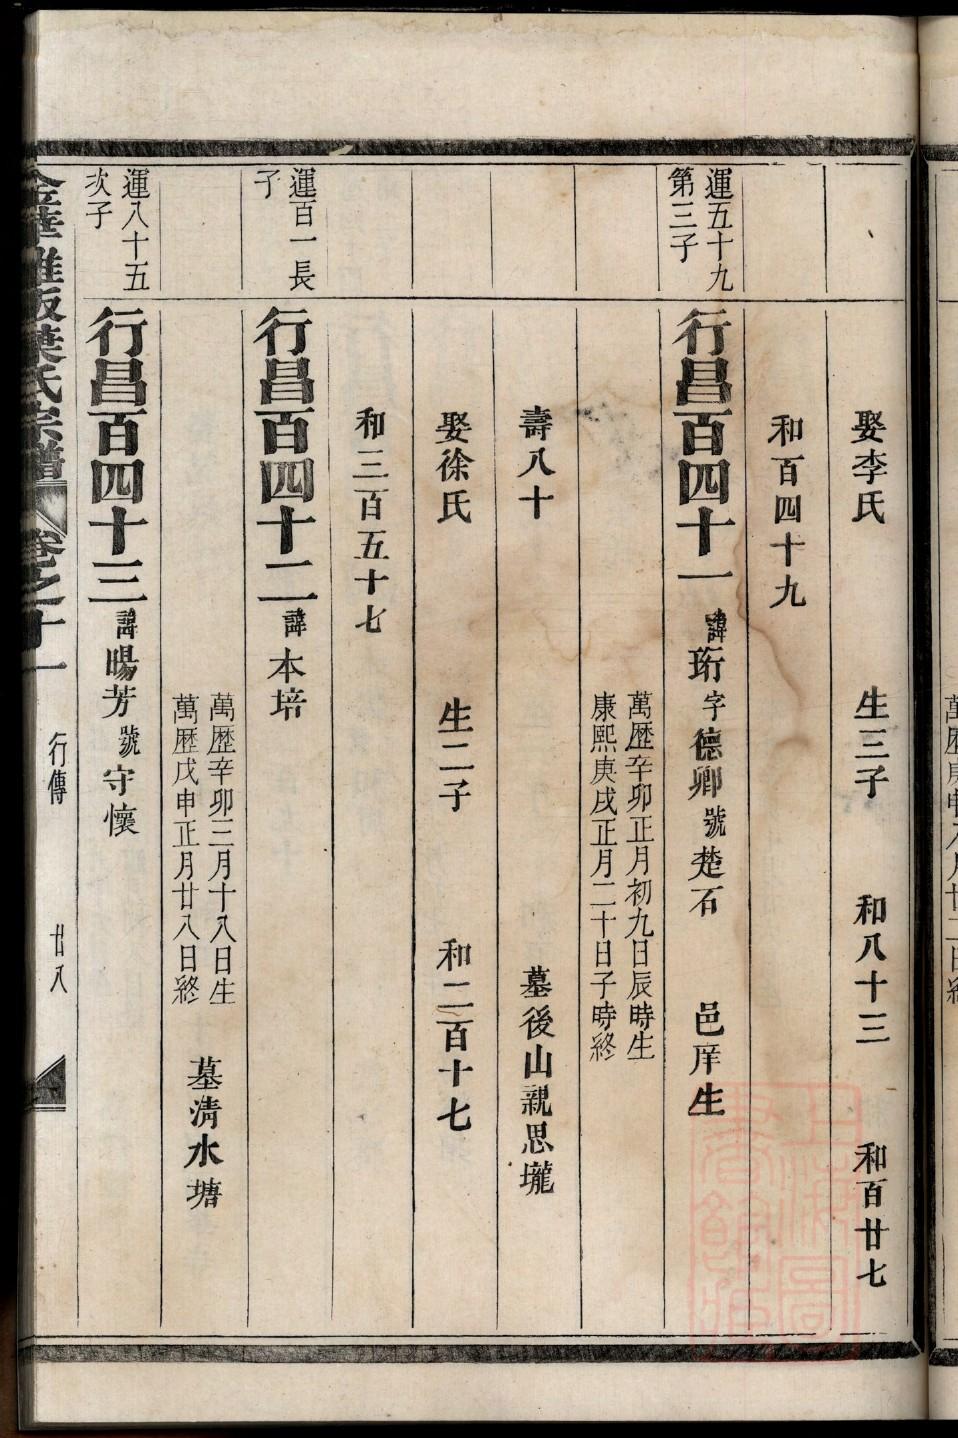 娶李氏　生三子　和八十三　和百廿七
和百四十九
運五十九
第三子
行昌百四十一　諱珩字德卿號楚石　邑庠生
萬歷辛卯正月初九日辰時生
康熙庚戌正月二十日子時終
壽八十　墓後山親思壠
娶徐氏　生二子　和二百十七
和三百五十七
運百一長
子
行昌百四十二　諱本培
萬歷辛卯三月十八日生
萬歷戊申正月廿八日終
墓清水塘
運八十五
次子
行昌百四十三　諱暘芳號守懷
葉氏宗譜　卷之十一　行傳　廿八